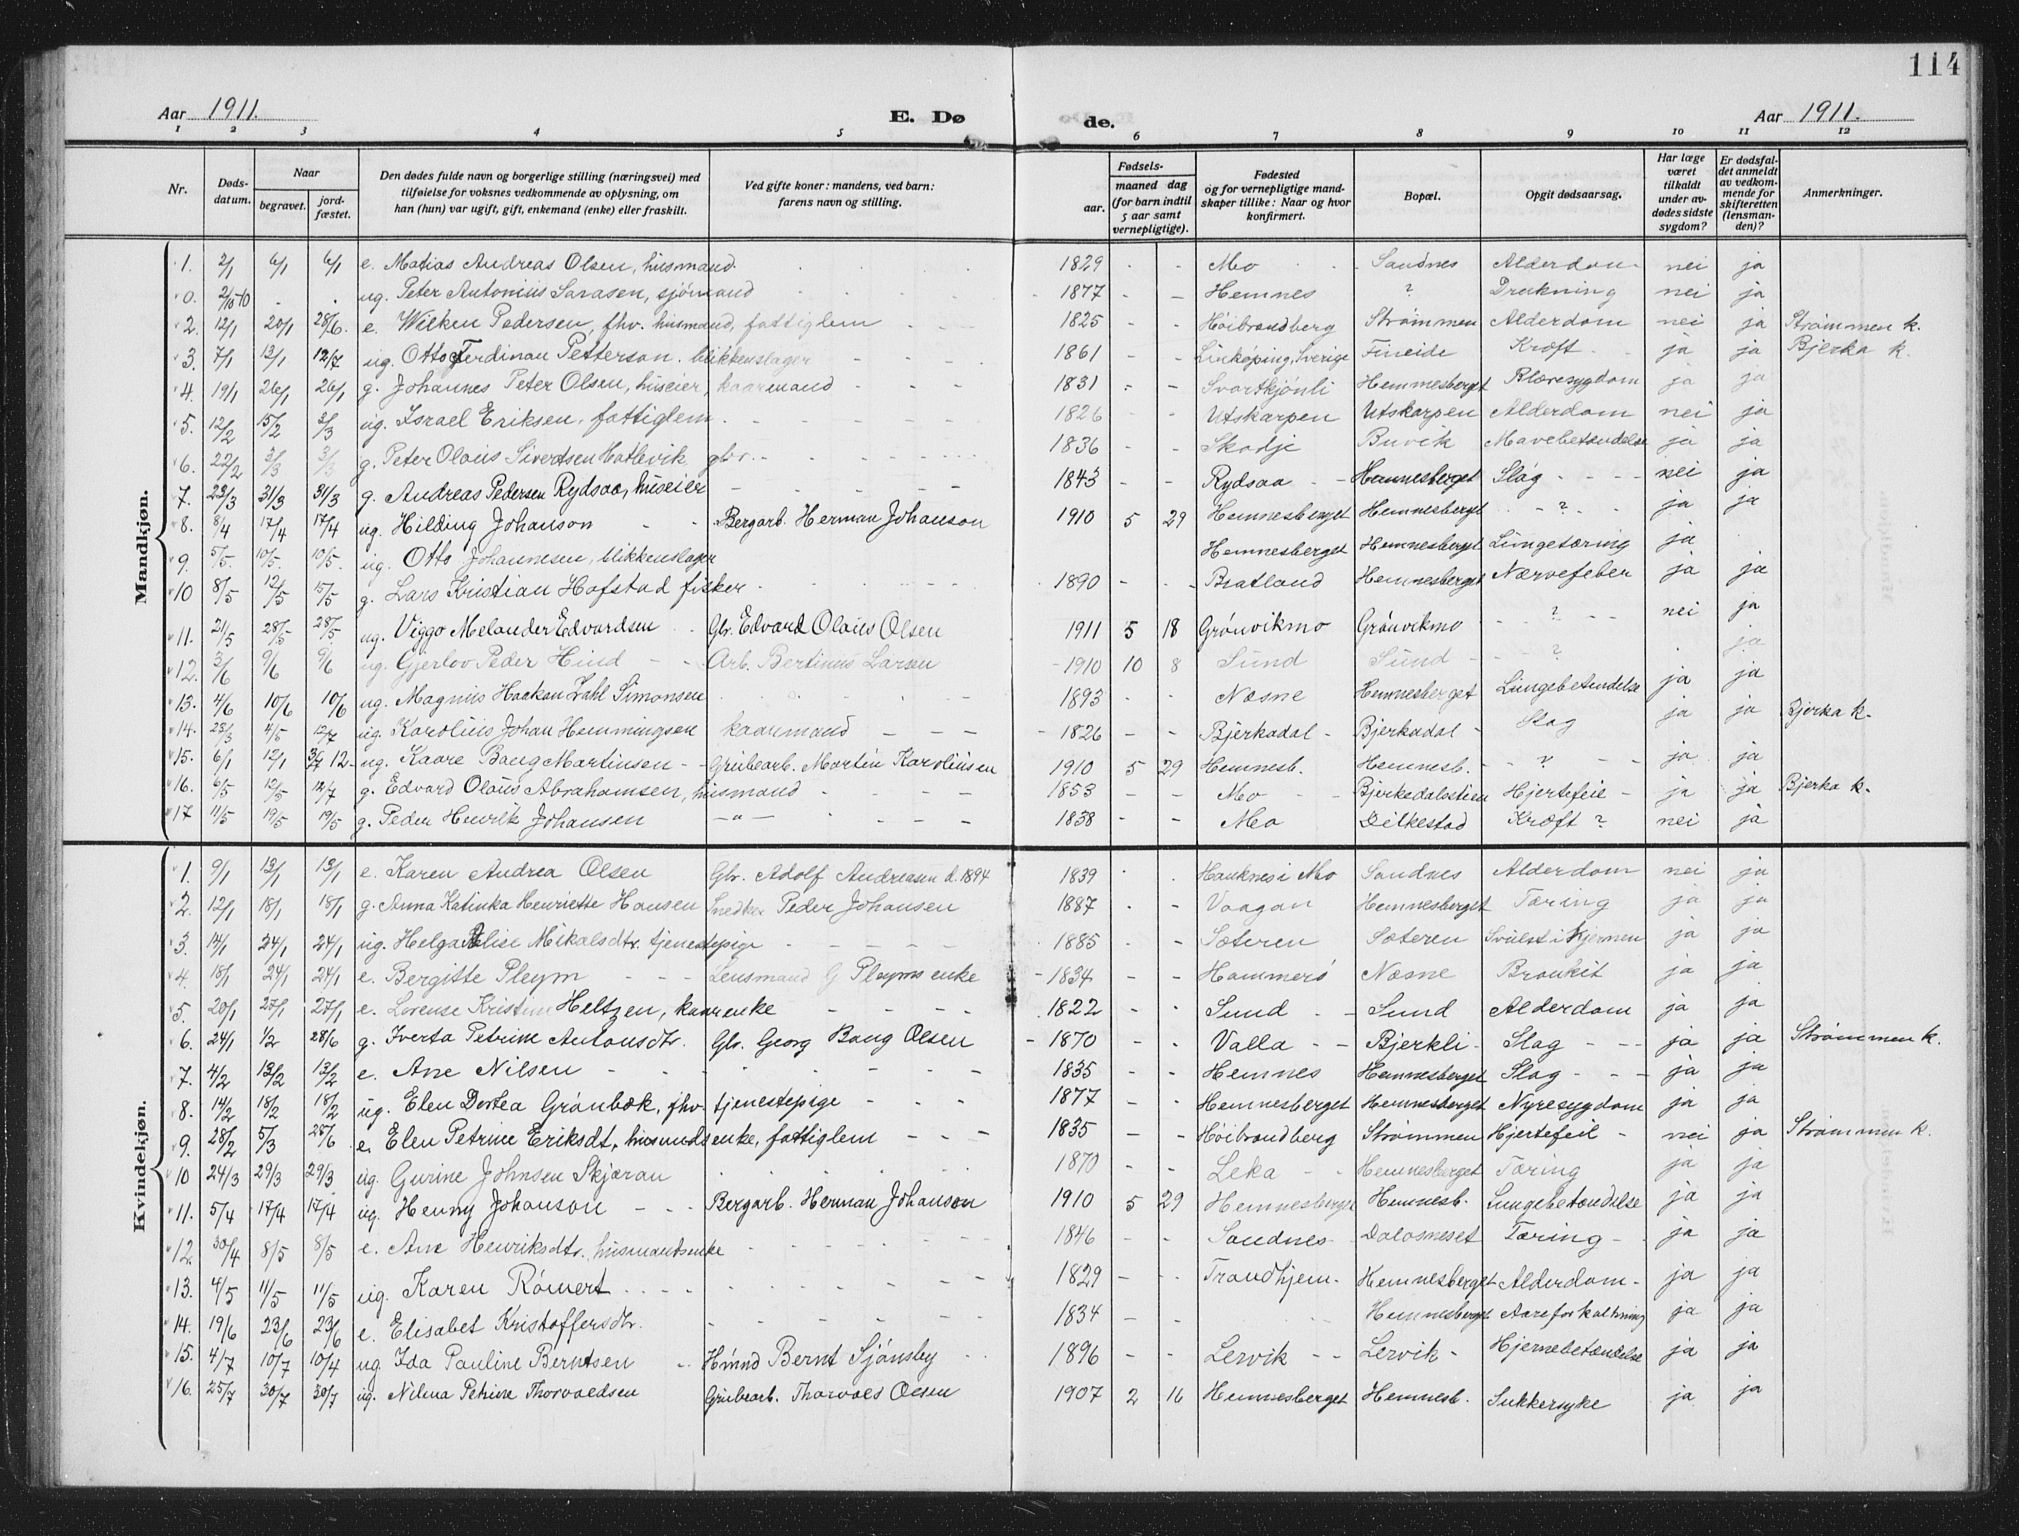 114
Aar 1911. E. Dø de. Aar 1911.
1 2 3 4 5 6 7 8 9 10 11 12
Nr. Døds-datum. Naar begravet. jord-fæstet. Den dødes fulde navn og borgerlige stilling (næringsvei) med tilføielse for voksnes vedkommende av oplysning, om han (hun) var ugift, gift, enkemand (enke) eller fraskilt. Ved gifte koner: mandens, ved barn: farens navn og stilling. Fødsels- aar. maaned dag (for barn indtil 5 aar samt vernepligtige). Fødested og for vernepligtige mandskaper tillike: Naar og hvor konfirmert. Bopæl. Opgit dødsaarsag. Har læge været tilkaldt under avdødes sidste sygdom? Er dødsfaldet anmeldt av vedkommende for skifteretten (lensmanden)? Anmerkninger.
Mandkjøn.
1. 2/1 6/1 6/1 e. Matias Andreas Olsen, husmand. 1829 - - Mo Sandnes Alderdom nei ja
0. 2/10-10 - - ug. Peter Antonius Sarasen, sjömand 1877 - - Hemnes ? Drukning nei ja
2. 12/1 20/1 28/6. e. Wilken Pedersen, fhv. husmand, fattiglem 1825 - - Höibrandberg Strømmen Alderdom nei ja Strømmen k.
3. 7/1 13/1 12/7 ug. Otto Ferdinan Petterson. blikkenslager 1861 - - Linköping, Sverige Fineide Kræft ja ja Bjerka k.
4. 19/1 26/1 26/1 g. Johannes Peter Olsen, huseier, kaarmand 1831 - - Svartkjönli Hemmesberget Blæresygdom ja ja
5. 12/2 15/2 3/3 ug. Israel Eriksen, fattiglem 1826 - - Utskarpen Utskarpen Alderdom nei ja
6. 22/2 3/3 3/3 g. Peter Olaus Sivertsen Hatlevik gbr. 1836 - - Skodje Buvik Mavebetændelse ja ja
7. 23/3 31/3 31/3 g. Andreas Pedersen Rydsaa, huseier 1843 - - Rydsaa Hemnesberget Slag nei ja
8. 8/4 17/4 17/4 ug. Hilding Johanson Bergarb. Herman Johanson 1910 5 29 Hemnesberget Hemnesberget ? ja ja
9. 5/5. 10/5. 10/5. ug. Otto Johannesen, blikkenslager Hemnesberget Hemnesberget Lungetæring ja
10 8/5 12/5 15/5 g. Lars Kristian Hofstad fisker 1890 - - Bratland Hemnesberget Nærvefeber ja ja
11. 21/5 28/5 28/5 ug. Viggo Melander Edvardsen Gbr. Edvard Olaus Olsen 1911 5 18 Grönvikmo Grönvikmo ? nei ja
12. 3/6 9/6 9/6 ug. Gjerlov Peder Hind Arb. Bertinus Larsen 1910 10 8 Sund Sund ? ja
13. 4/6 10/6 10/6 ug. Magnus Haakan Zahl Simonsen 1893 - - Næsne Hemnesberget Lungebetendelse ja ja
14. 28/3 4/5 12/7 ug. Karolius Johan Hemmingsen kaarmand 1826 - - Bjerkadal Bjerkadal Slag ja ja Bjerka k.
15. 6/1 12/1 3/7 12 ug. Kaare Bang Martinsen Grubearb. Martin Karoliusen 1910 5 29 Hemnesb. Hemnesb. ? ja ja
16. 6/5 12/5 12/7 g. Edvard Olaus Abrahamsen, husmand 1853 - - Mo Bjerkedalsstien Hjertefeil ja ja Bjerka k.
17 11/5 19/5 19/5 g. Peder Henrik Johansen -"- 1838 - - Mo Dilkestad Kræft ? nei ja
Kvindekjøn.
1. 9/1 13/1 13/1 e. Karen Andrea Olsen Gbr. Adolf Andreasen d. 1894 1839 - - Hauknes i Mo Sandnes Alderdom nei ja
2. 12/1 18/1 18/1 g. Anna Katinka Henriette Hansen Snedker Peder Johansen 1887 - - Vaagan Hemnesberget Tæring ja ja
3. 14/1 24/1 24/1 ug. Helga Elise Mikalsdtr. tjenestepige 1885 - - Sæteren Sæteren Svulst i Hjernen ja ja
4. 18/1 24/1 24/1 e. Bergitte Pleym Lensmand G Pleyms enke 1834 - - Hammerö Næsne Bronkit ja ja
5. 20/1 27/1 27/1 e. Lorense Kristine Heltzen, kaarenke 1822 - - Sund Sund Alderdom ja ja
6. 24/1 1/2 28/6 g. Iverta Petrine Antonsdtr. Gbr. Georg Bang Olsen 1870 - - Valla Bjerkli Slag ja ja Strømmen k.
7. 4/2 13/2 13/2 e. Ane Nilsen 1835 - - Hemnes Hemnesberget Slag ja ja
8. 14/2 18/2 18/2 ug. Elen Dortea Grönbæk, fhv. tjenestepige 1877 - - Hemnesberget Hemnesberget Nyresygdom ja ja
9. 28/2 5/3 28/6 e. Elen Petrine Eriksdt, husmandsenke, fattiglem 1835 - - Höibrandberg Strømmen Hjertefeil nei ja Strømmen k.
10 24/3 29/3 29/3 ug. Gurine Johnsen Skjæran 1870 - - Leka Hemnesberget Tæring ja ja
11. 5/4 17/4 17/4 ug. Henny Johanson Bergarb. Herman Johanson 1910 5 29 Hemnesberget Hemnesb. Lungebetændelse ja ja
12. 30/4 8/5 8/5 e. Ane Henriksdtr. husmandsenke 1846 - - Sandnes Dalosneset Tæring ja ja
13. 4/5 11/5 11/5 ug. Karen Römert 1829 - - Trondhjem Hemnesberget Alderdom ja ja
14. 19/6 23/6 23/6 e. Elisabet Kristoffersdtr. 1834 - - Hemnesberget Aareforkalkning ja ja
15. 4/7 10/7 10/4 ug. Ida Pauline Berntsen Hmnd Bernt Sjönsby 1896 - - Lervik Lervik Hjernebetændelse ja ja
16. 25/7 30/7 30/7 ug. Nilma Petrine Thorvaldsen Grubearb. Thorvald Olsen 1907 2 16 Hemnesberget Hemnesb. Sukkersyke ja ja